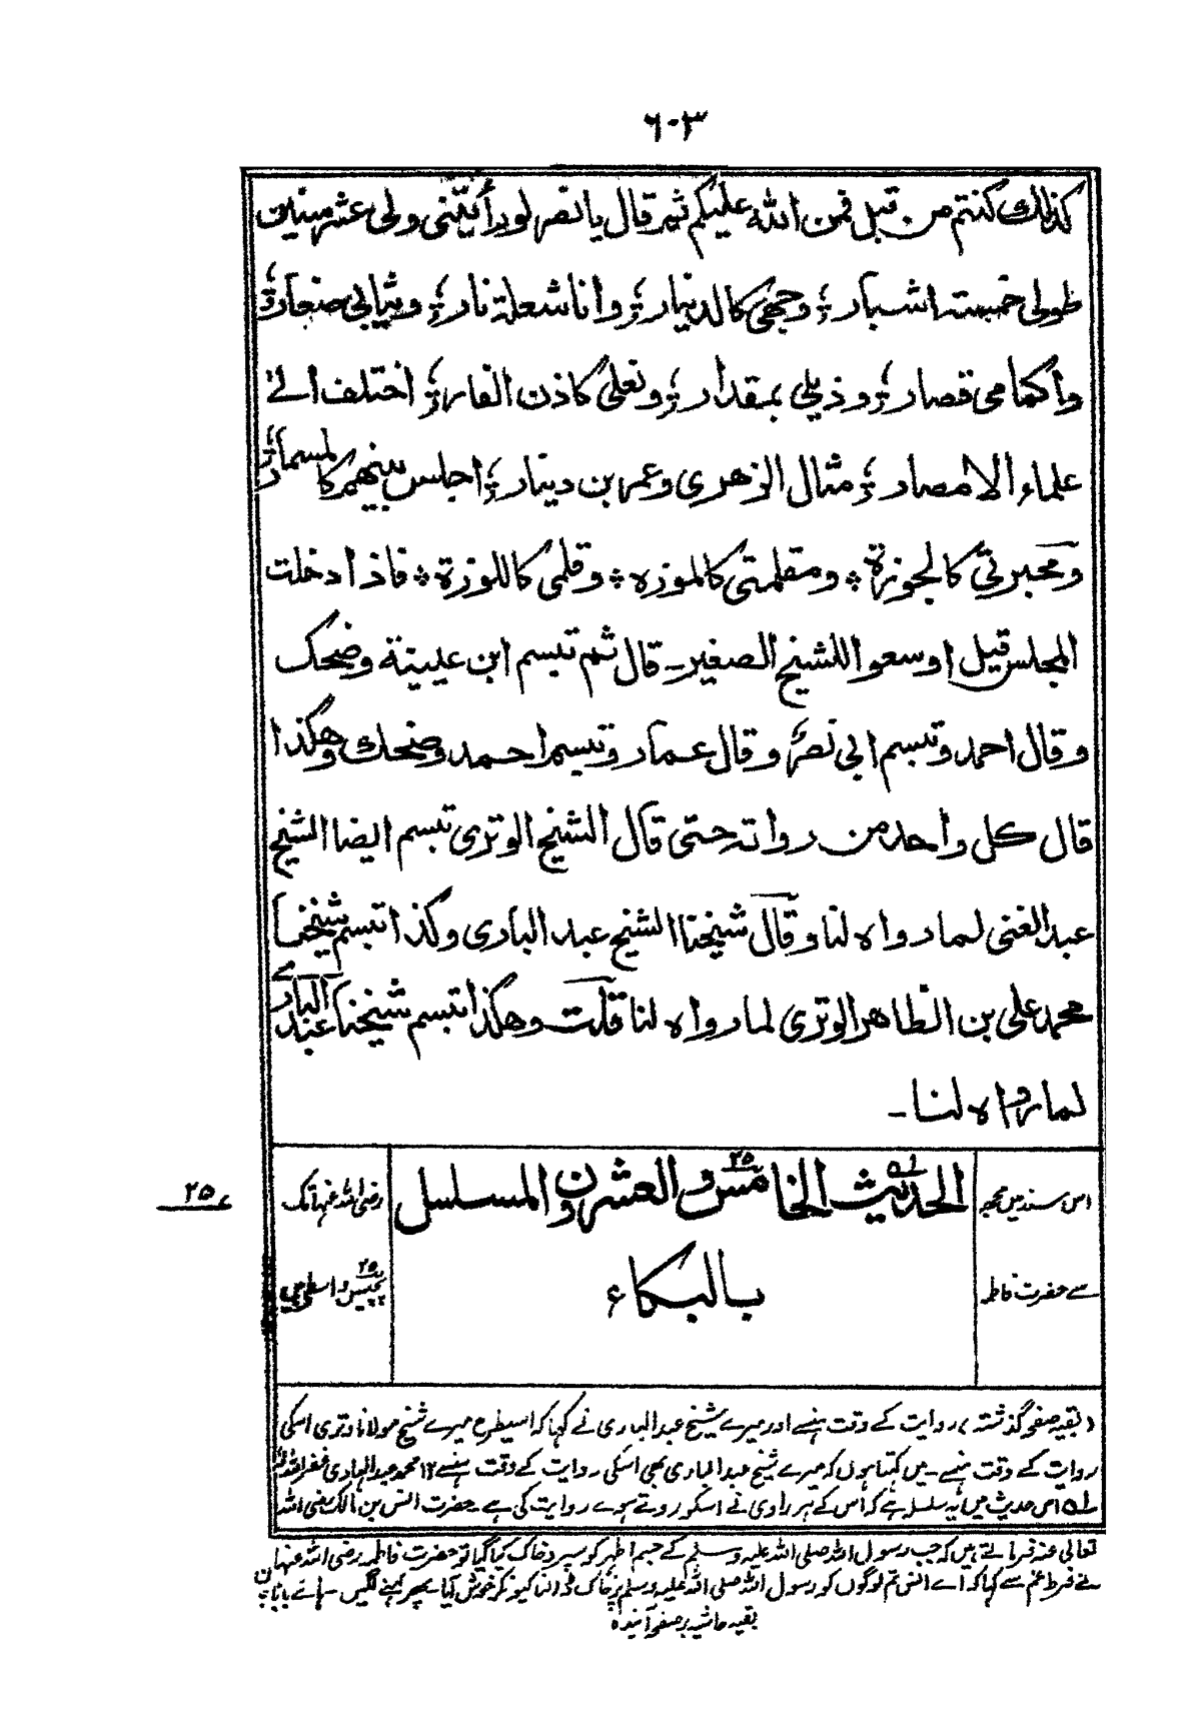 ٦٠٣
كذلك كنتم من قبل فمن الله عليكم ثم قال يا نصر لو رأيتني ولي عشر سنين
طولي خمسة اشبار ؛ ووجهي كالدينار ؛ وانا شعلة نار ؛ وثيابي صغار ؛
وأكمامي قصار ؛ وذيلي بمقدار ؛ ونعلي كاذن الفار ؛ اختلف الى
علماء الامصار ؛ مثال الزهري وعمر بن دينار ؛ اجلس بينهم كالمسمار ؛
ومحبرتي كالجوزة ؞ ومقلمتي كالموزه ؞ وقلمي كاللوزة ؞ فاذا دخلت
المجلس قيل اوسعوا للشيخ الصغير ـ قال ثم تبسم ابن عيينة وضحك
وقال احمد وتبسم ابي نصر وقال عمار وتبسم احمد وضحك وهكذا
قال كل واحد من رواته حتى قال الشيخ الوترى تبسم ايضا الشيخ
عبد الغنى لما رواه لنا وقال شيخنا الشيخ عبد البارى وكذا تبسم شيخنا
محمد على بن الظاهر الوترى لما رواه لنا قلت وهكذا تبسم شيخنا عبد البارے
لما رواه لنا ـ
اس سند میں مجھ
الحديث الخامس والعشرون المسلسل ٢٥ لـه
رضی اللہ عنہا تک
٢٥ء
سے حضرت فاطمہ
بالبكاء
پچیس واسطے ہیں ٢٥
(بقیہ صفحہ گذشتہ) روایت کے وقت ہنسے اور میرے شیخ عبد الباری نے کہا کہ اسیطرح میرے شیخ مولانا وتری اسکی
روایت کے وقت ہنسے ـ میں کہتا ہوں کہ میرے شیخ عبد الباری بھی اسکی روایت کے وقت ہنسے ١٢ محمد عبد الہادی غفر اللہ لہ
لـه اس حدیث میں یہ تسلسل ہے کہ اُس کے ہر راوی نے اسکو روتے ہوے روایت کی ہے ـ حضرت انس بن مالک رضی اللہ
تعالی عنہ فرماتے ہیں کہ جب رسول اللہ صلی اللہ علیہ وسلم کے جسم اطہر کو سپرد خاک کیا گیا تو حضرت فاطمہ رضی اللہ عنہا
نے فرط غم سے کہا کہ اے انس تم لوگوں کو رسول اللہ صلی اللہ علیہ وسلم پر خاک ڈالنا کیونکر خوش آیا ـ پھر کہنے لگیں ـ ہائے بابا
بقیہ حاشیہ بر صفحہ آئیندہ